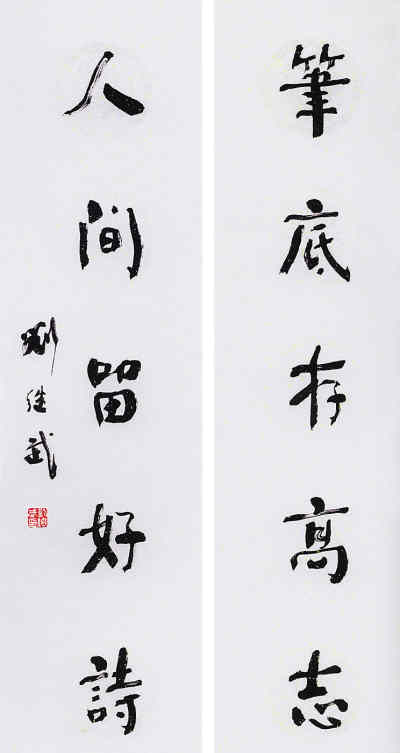 筆底存高志
人间留好詩
劉继武